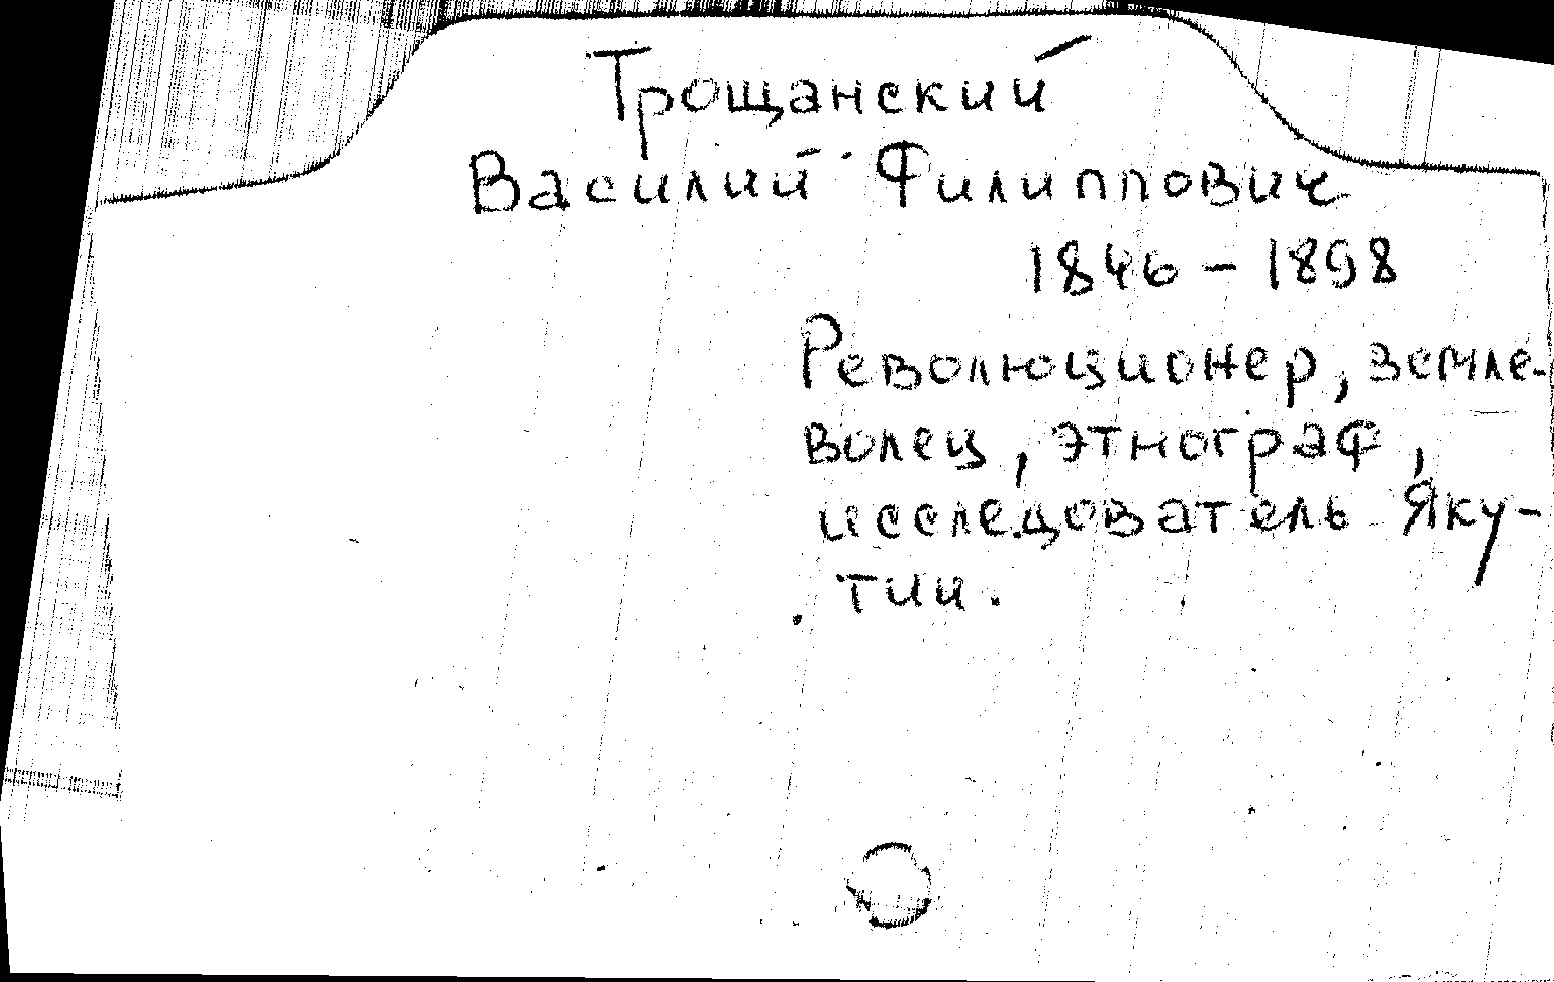 Трощанский
Василий Филиппович
1846 - 1898
Революционер, земле-
волец, этнограф,
исследователь Яку-
тии.